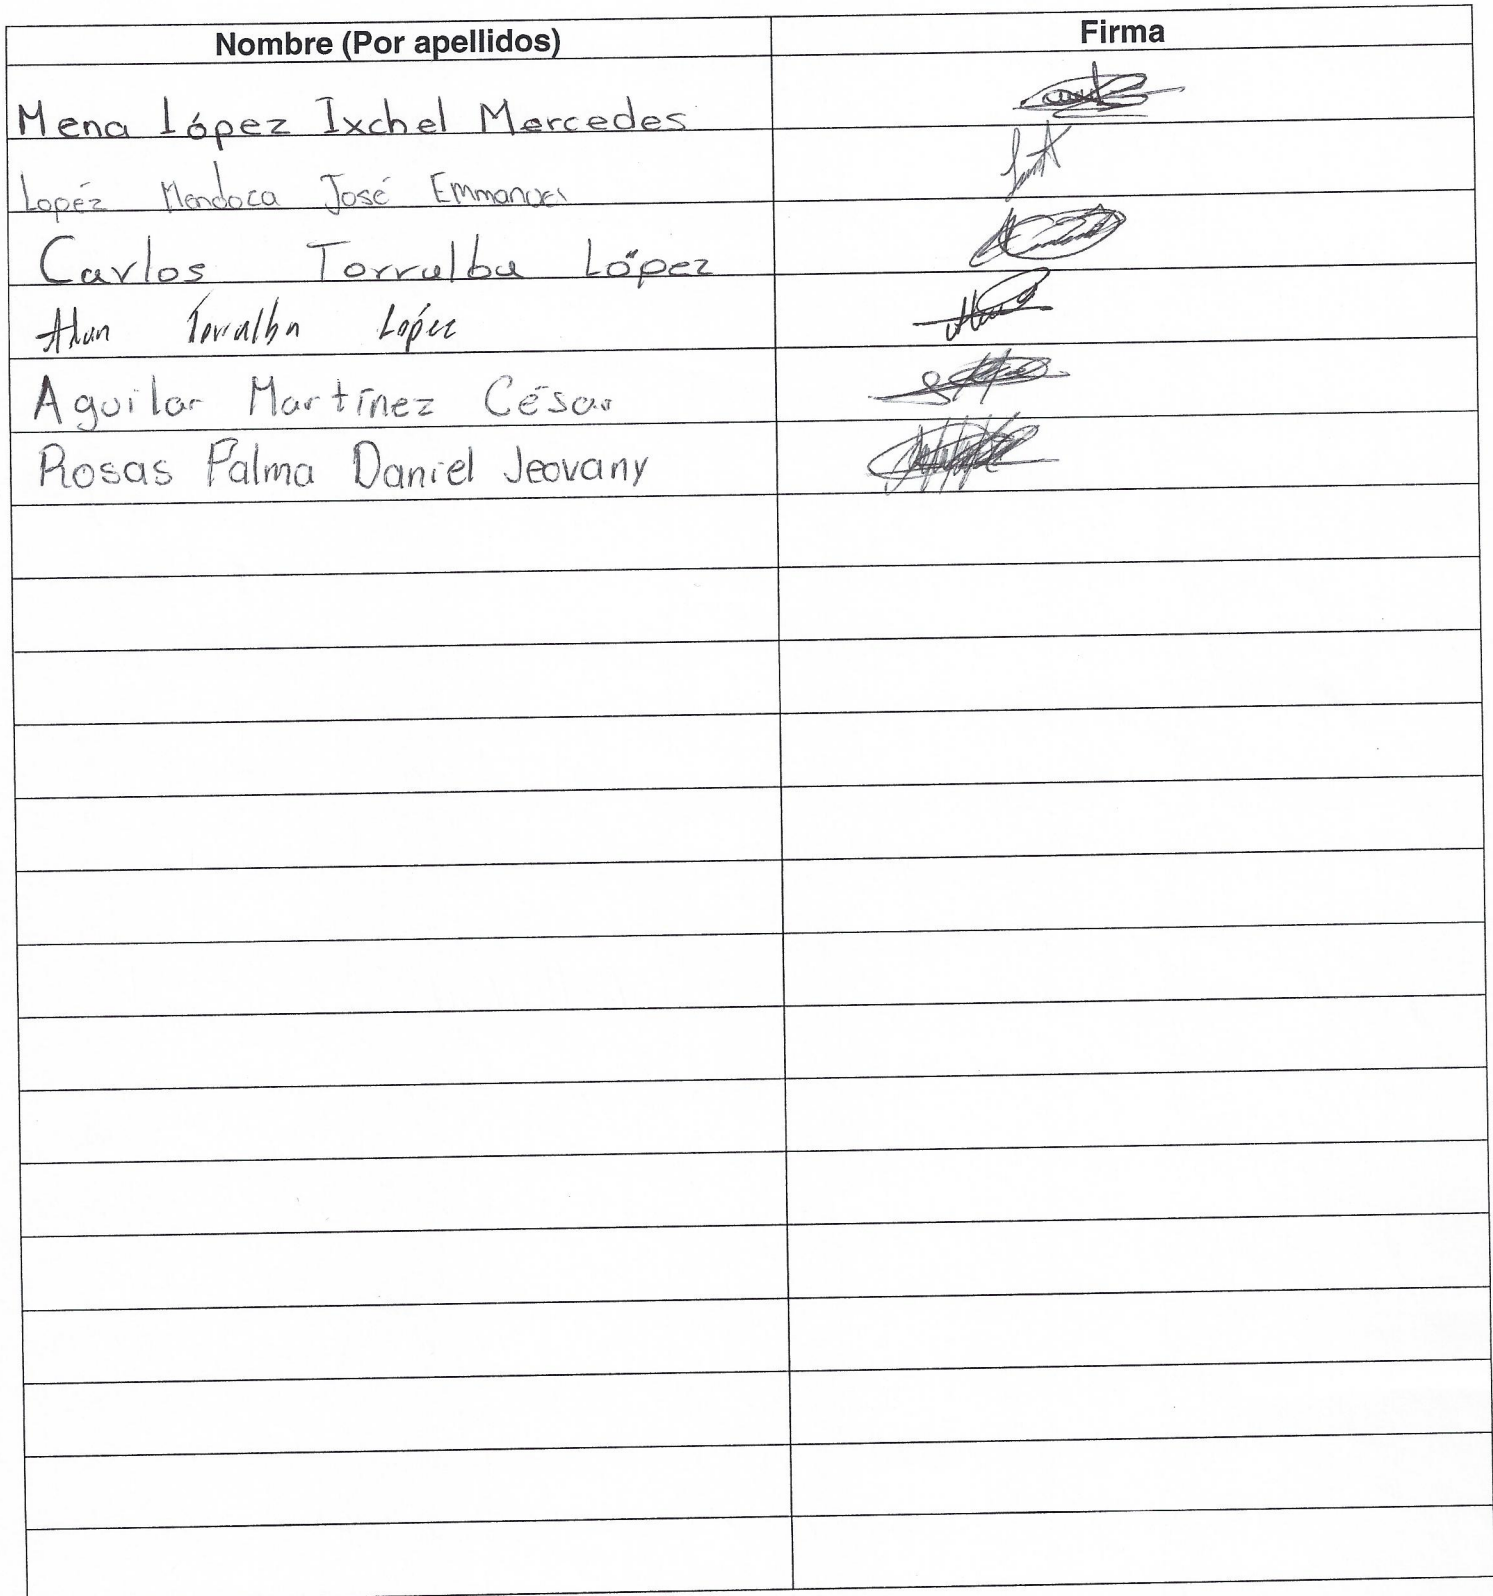 Nombre (Por apellidos) Firma
Mena López Ixchel Mercedes
Lopéz Mendoca José Emmanuel
Carlos Torralba López
Alan Torralba López
Aguilar Martínez César
Rosas Palma Daniel Jeovany